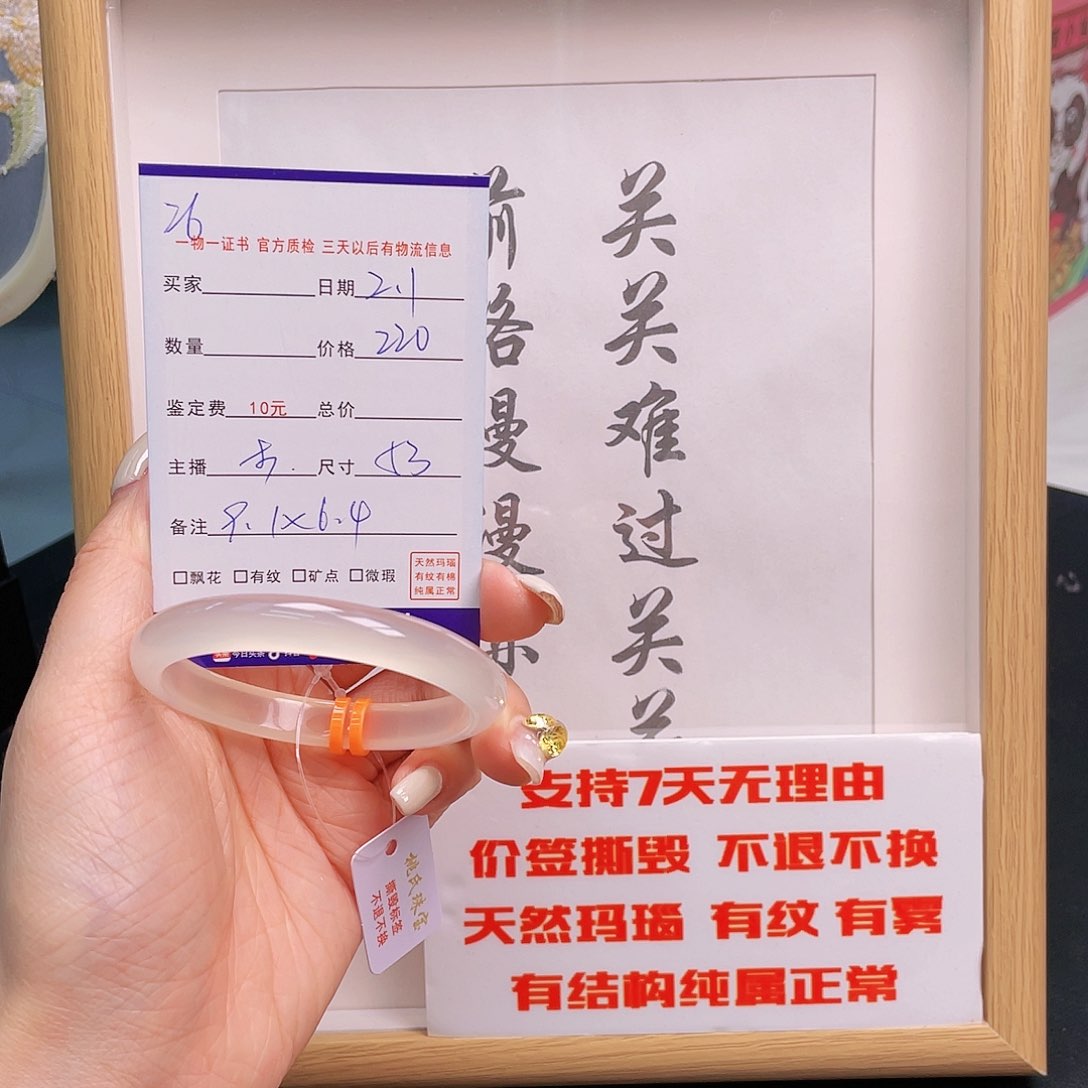 26
一物一证书 官方质检 三天以后有物流信息
买家 日期 2.1
数量 价格 220
鉴定费 10元 总价
主播 尺寸 53
备注 9.1×6.4
□飘花 □有纹 □矿点 □微瑕
天然玛瑙
有纹有棉
纯属正常
今日头条
关关难过关关
前路漫漫亦
姚氏珠宝
撕毁标签
不退不换
支持7天无理由
价签撕毁 不退不换
天然玛瑙 有纹 有雾
有结构纯属正常